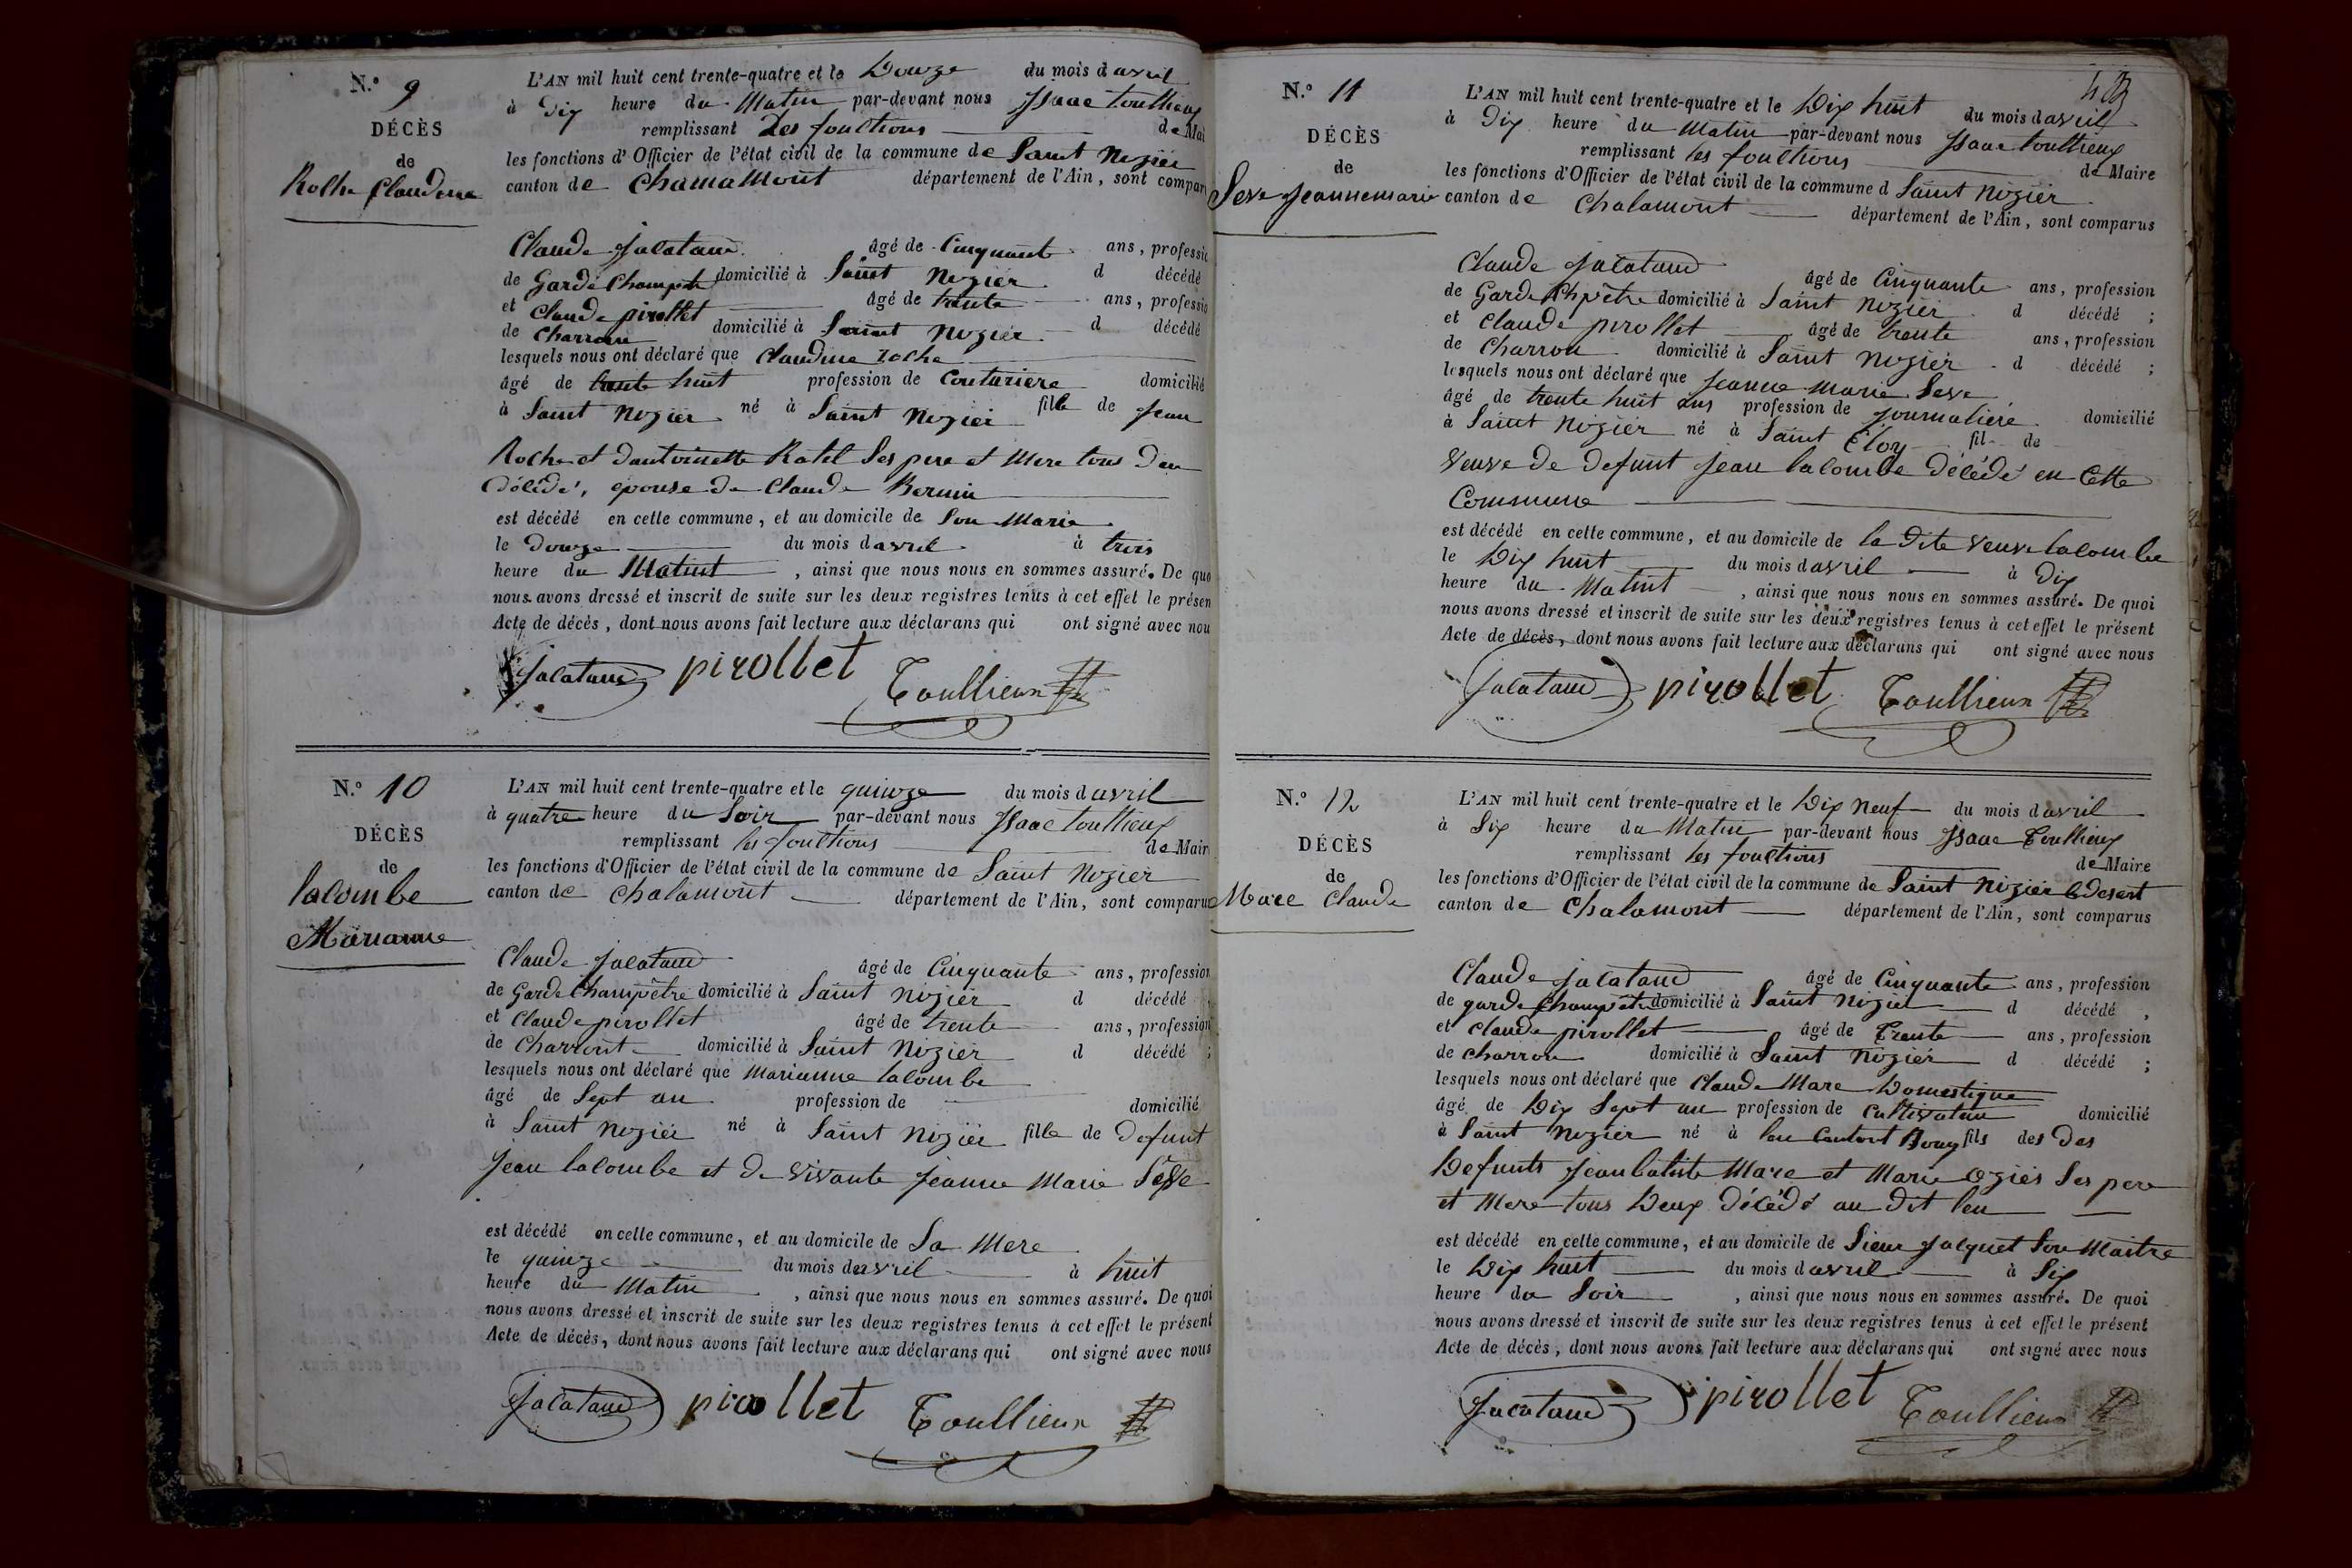 N.º 9
DÉCÈS
de
Rolhe Claudine
L'AN mil huit cent trente-quatre et le Douze du mois d avril
à Dix heure du Matin par-devant nous Isaac toullieux
remplissant Les fonctions de Mai
les fonctions d'Officier de l'état civil de la commune de Saint Nizier
canton de Chamamont département de l'Ain, sont compar
Claude Jacataud âgé de Cinquante ans, professio
de Garde Champetr domicilié à Saint Nizier d décédé
et Claude pirollet âgé de trente ans, professio
de Charron domicilié à Saint Nizier d décédé
lesquels nous ont déclaré que Claudine roche
âgé de trente huit profession de Couturiere domicilié
à Saint Nizier né à Saint Nizier fille de Jean
Roche et dantoinette Ratel Ses pere et Mere tous deu
décédé, epouse de Claude Bernin
est décédé en cette commune, et au domicile de Son Marie
le Douze du mois d avril à trois
heure du Matint, ainsi que nous nous en sommes assuré. De quo
nous avons dressé et inscrit de suite sur les deux registres tenus à cet effet le présen
Acte de décès, dont nous avons fait lecture aux déclarans qui ont signé avec nou
Jacataud pirollet Toullieux
N.º 10
DÉCÈS
de
lacombe
Marianne
L'AN mil huit cent trente-quatre et le quinze du mois d avril
à quatre heure du Soir par-devant nous Isaac toullieux
remplissant les fonctions de Mair
les fonctions d'Officier de l'état civil de la commune de Saint Nizier
canton de Chalamont département de l'Ain, sont comparu
Claude Jacataud âgé de Cinquante ans, profession
de Garde Champètre domicilié à Saint Nizier d décédé
et Claude pirollet âgé de trente ans, profession
de Charront domicilié à Saint Nizier d décédé ;
lesquels nous ont déclaré que Marianne lacombe
âgé de Sept an profession de domicilié
à Saint Nizier né à Saint Nizier fille de Defunt
Jean lacombe et de vivante Jeanne Marie Seve
est décédé en cette commune, et au domicile de Sa Mere
le quinze du mois d avril à huit
heure du Matin, ainsi que nous nous en sommes assuré. De quoi
nous avons dressé et inscrit de suite sur les deux registres tenus à cet effet le présent
Acte de décès, dont nous avons fait lecture aux déclarans qui ont signé avec nous
Jacataud pirollet Toullieux
N.º 11
DÉCÈS
de
Seve Jeannemarie
L'AN mil huit cent trente-quatre et le Dix huit du mois d avril
à Dix heure du Matin par-devant nous Isaac toullieux
remplissant les fonctions de Maire
les fonctions d'Officier de l'état civil de la commune d Saint Nizier
canton de Chalamont département de l'Ain, sont comparus
Claude Jacataud âgé de Cinquante ans, profession
de Garde Chpètre domicilié à Saint Nizier d décédé ;
et Claude pirollet âgé de trente ans, profession
de Charron domicilié à Saint Nizier d décédé ;
lesquels nous ont déclaré que Jeanne Marie Seve
âgé de trente huit ans profession de Journaliere domicilié
à Saint Nizier né à Saint Eloy fil de
Veuve de defunt Jean lacombe décédé en Cette
Commune
est décédé en cette commune, et au domicile de la Dite Veuve lacombe
le Dix huit du mois d avril à Dix
heure du Matint, ainsi que nous nous en sommes assuré. De quoi
nous avons dressé et inscrit de suite sur les deux registres tenus à cet effet le présent
Acte de décès, dont nous avons fait lecture aux déclarans qui ont signé avec nous
Jacataud pirollet Toullieux
N.º 12
DÉCÈS
de
Mare Claude
L'AN mil huit cent trente-quatre et le Dix Neuf du mois d avril
à Six heure du Matin par-devant nous Isaac Toullieux
remplissant les fonctions de Maire
les fonctions d'Officier de l'état civil de la commune de Saint Nizier le desert
canton de Chalamont département de l'Ain, sont comparus
Claude Jacataud âgé de Cinquante ans, profession
de garde Champètre domicilié à Saint Nizier d décédé ,
et Claude pirollet âgé de Trente ans, profession
de Charron domicilié à Saint Nizier d décédé ;
lesquels nous ont déclaré que Claude Mare Domestique
âgé de Dix Sept an profession de Cultivateur domicilié
à Saint Nizier né à fils des Des
Defunts Jean batiste Mare et Marie ogier Ses pere
et Mere tous Deux décédé au Dit lieu
est décédé en cette commune, et au domicile de Sieur Jacquet Son Maitre
le Dix huit du mois d avril à Six
heure du Soir, ainsi que nous nous en sommes assuré. De quoi
nous avons dressé et inscrit de suite sur les deux registres tenus à cet effet le présent
Acte de décès, dont nous avons fait lecture aux déclarans qui ont signé avec nous
Jacataud pirollet Toullieux